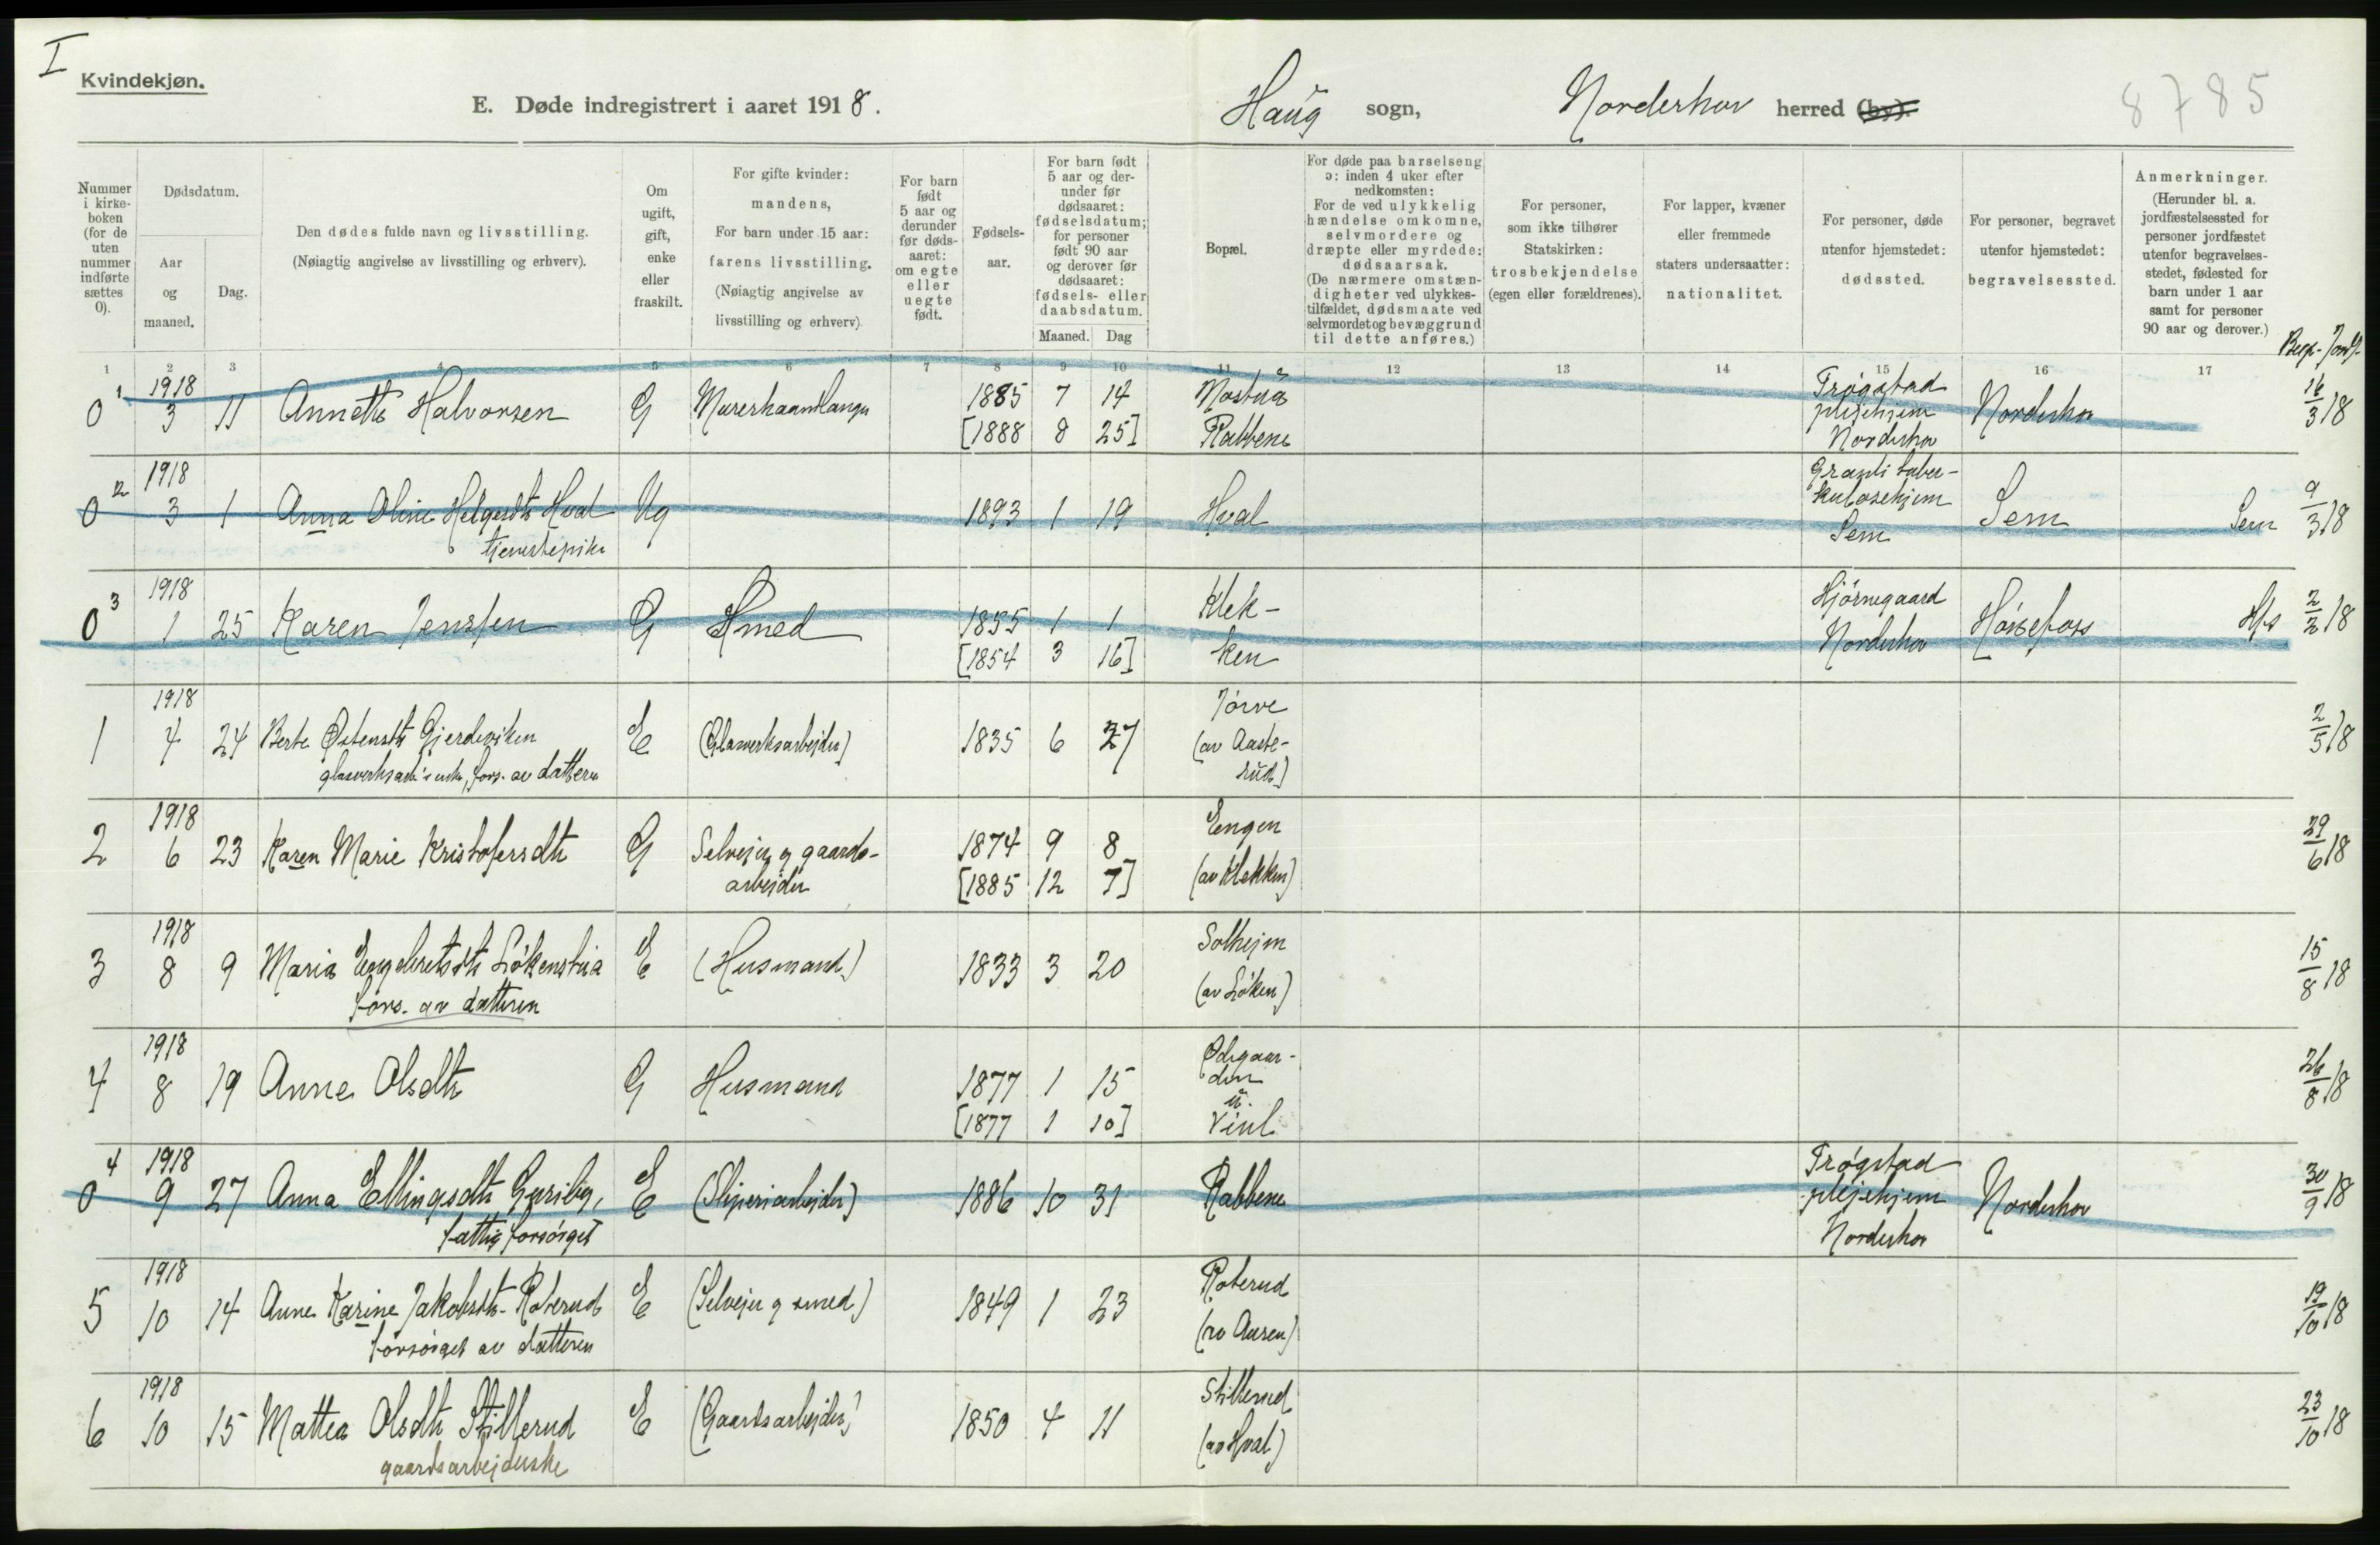 I
Kvindekjøn.
E. Døde indregistrert i aaret 1918.
Haug sogn, Norderhov herred (by).
8785
Nummer i kirkeboken (for de uten nummer indførte sættes 0).
Dødsdatum.
Aar og maaned.
Dag.
Den dødes fulde navn og livsstilling.
(Nøiagtig angivelse av livsstilling og erhverv).
Om ugift, gift, enke eller fraskilt.
For gifte kvinder: mandens,
For barn under 15 aar: farens livsstilling.
(Nøiagtig angivelse av livsstilling og erhverv).
For barn født 5 aar og derunder før dødsaaret: om egte eller uegte født.
Fødselsaar.
For barn født 5 aar og derunder før dødsaaret: fødselsdatum; for personer født 90 aar og derover før dødsaaret: fødsels- eller daabsdatum.
Maaned. Dag
Bopæl.
For døde paa barselseng ɔ: inden 4 uker efter nedkomsten:
For de ved ulykkelig hændelse omkomne, selvmordere og dræpte eller myrdede: dødsaarsak.
(De nærmere omstændigheter ved ulykkestilfældet, dødsmaate ved selvmordet og bevæggrund til dette anføres.)
For personer, som ikke tilhører Statskirken: trosbekjendelse (egen eller forældrenes).
For lapper, kvæner eller fremmede staters undersaatter: nationalitet.
For personer, døde utenfor hjemstedet: dødssted.
For personer, begravet utenfor hjemstedet: begravelsessted.
Anmerkninger.
(Herunder bl. a. jordfæstelsessted for personer jordfæstet utenfor begravelsesstedet, fødested for barn under 1 aar samt for personer 90 aar og derover.)
1 2 3 4 5 6 7 8 9 10 11 12 13 14 15 16 17
0 1 1918 3 11 Annette Halvorsen G Murerhaandlanger 1885 7 14 Mostua Trøgstad plejehjem Norderhov Norderhov 16/3 18
[1888 8 25] Rabbene
0 2 1918 3 1 Anna Oline Helgesdtr Hval Ug 1893 1 19 Hval Granli tuberkulosehjem Sem Sem Sem 9/3 18
tjenestepike
0 3 1918 1 25 Karen Jenssen G Smed 1855 1 1 Klekken Hjørnegaard Norderhov Hønefoss Hfs 2/2 18
[1854 3 16]
1 1918 4 24 Berte Østensdtr Gjerdeviken E (Glasverksarbejder) 1835 6 27 Jørve (av Aasterud) 2/5 18
glasverksarb's enke, fors. av datteren
2 1918 6 23 Karen Marie Kristofersdtr G Selvejer og gaardsarbejder 1874 9 8 Engen (av Klekken) 29/6 18
[1885 12 7]
3 1918 8 9 Maria Engebretsdtr Løkenstua E (Husmand) 1833 3 20 Solhejm (av Løken) 15/8 18
fors. av datteren
4 1918 8 19 Anne Olsdtr G Husmand 1877 1 15 Ødegaarden u. Veul 26/8 18
[1877 1 10]
0 4 1918 9 27 Anna Ellingsdtr E (Sliperiarbejder) 1886 10 31 Rabbene Trøgstad plejehjem Norderhov Norderhov 30/9 18
fattig forsørget
5 1918 10 14 Anne Karine Jakobsdtr Roterud E (Selvejer og smed) 1849 1 23 Roterud (av Aasen) 19/10 18
forsørget av datteren
6 1918 10 15 Mattea Olsdtr Stillerud E (Gaardsarbejder) 1850 4 11 Stillerud (av Hval) 23/10 18
gaardsarbejderske